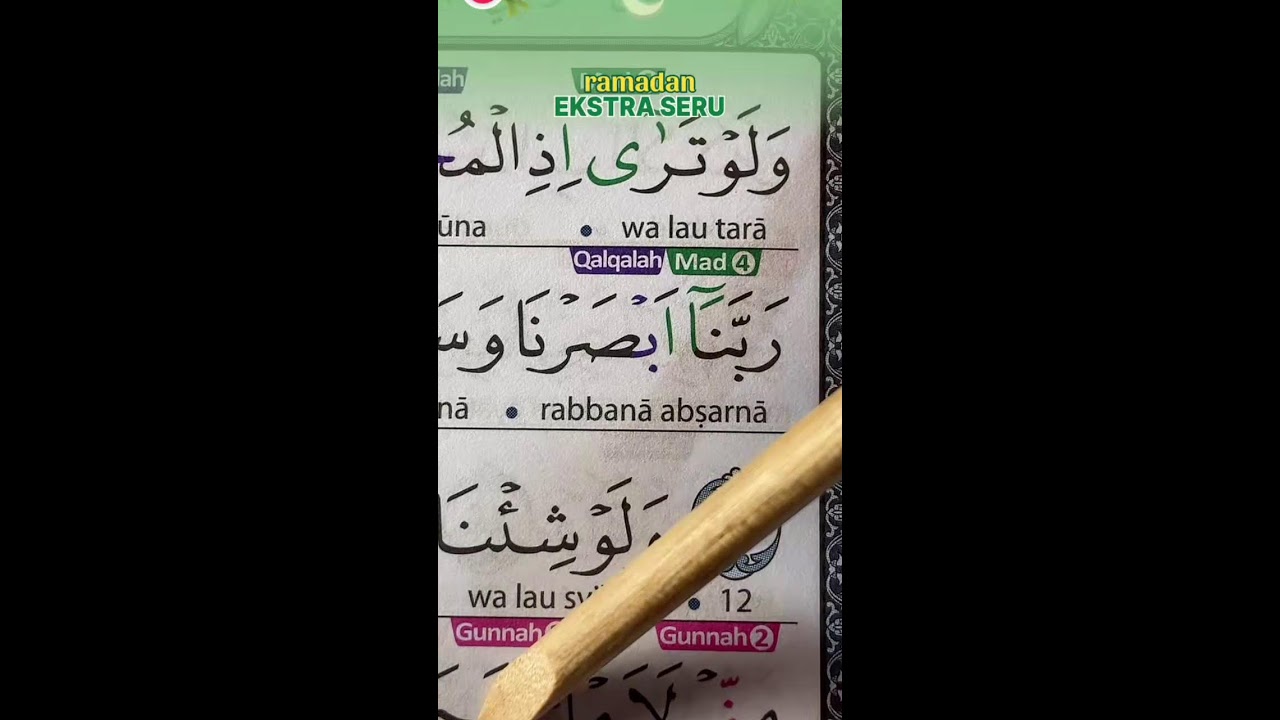 ramadan
EKSTRA SERU
وَلَوْ تَرٰٓى اِذِ
ūna • wa lau tarā
Qalqalah Mad 4
رَبَّنَآ اَبْصَرْنَا
nā • rabbanā abṣarnā
وَلَوْ شِئْنَا
wa lau • 12
Gunnah Gunnah 2